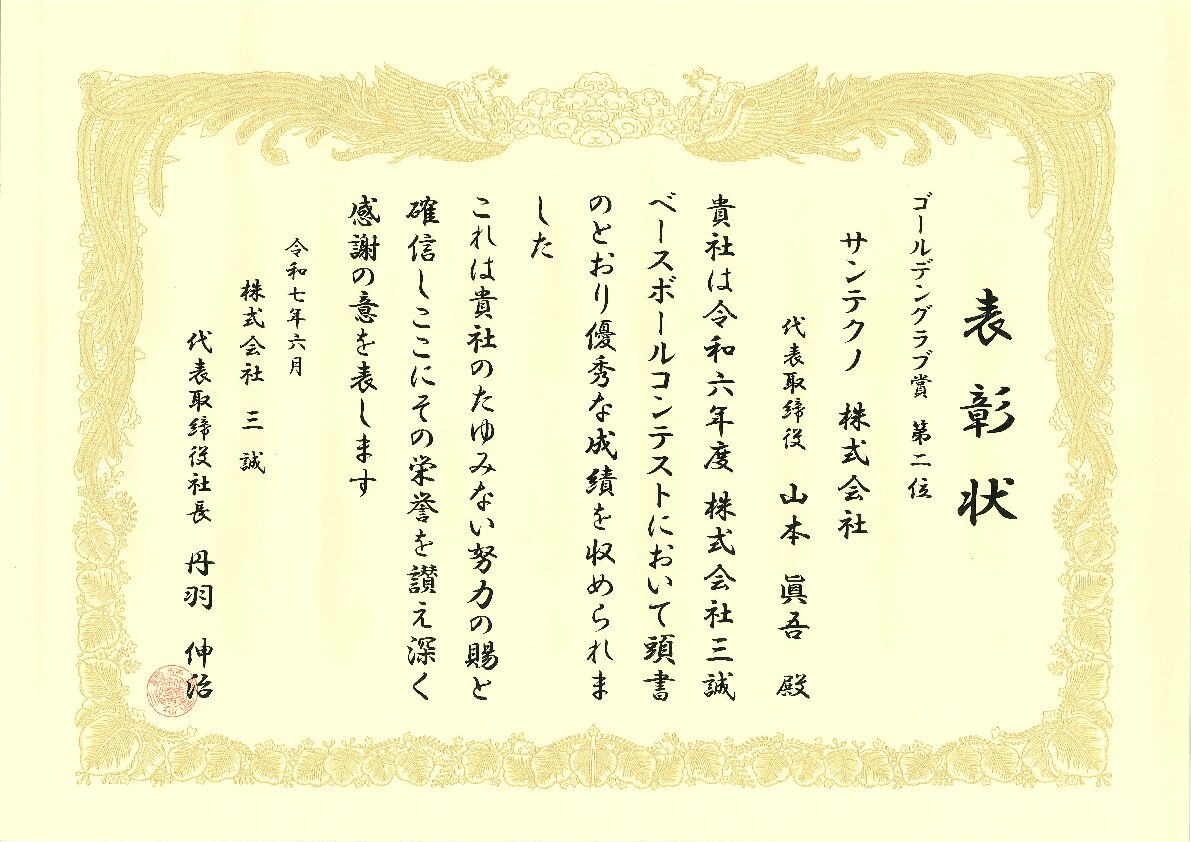 表彰状
ゴールデングラブ賞 第二位
サンテクノ 株式会社
代表取締役 山本 眞吾 殿
貴社は令和六年度 株式会社三誠
ベースボールコンテストにおいて頭書
のとおり優秀な成績を収められま
した
これは貴社のたゆみない努力の賜と
確信しここにその栄誉を讃え深く
感謝の意を表します
令和七年六月
株式会社 三誠
代表取締役社長 丹羽 伸治